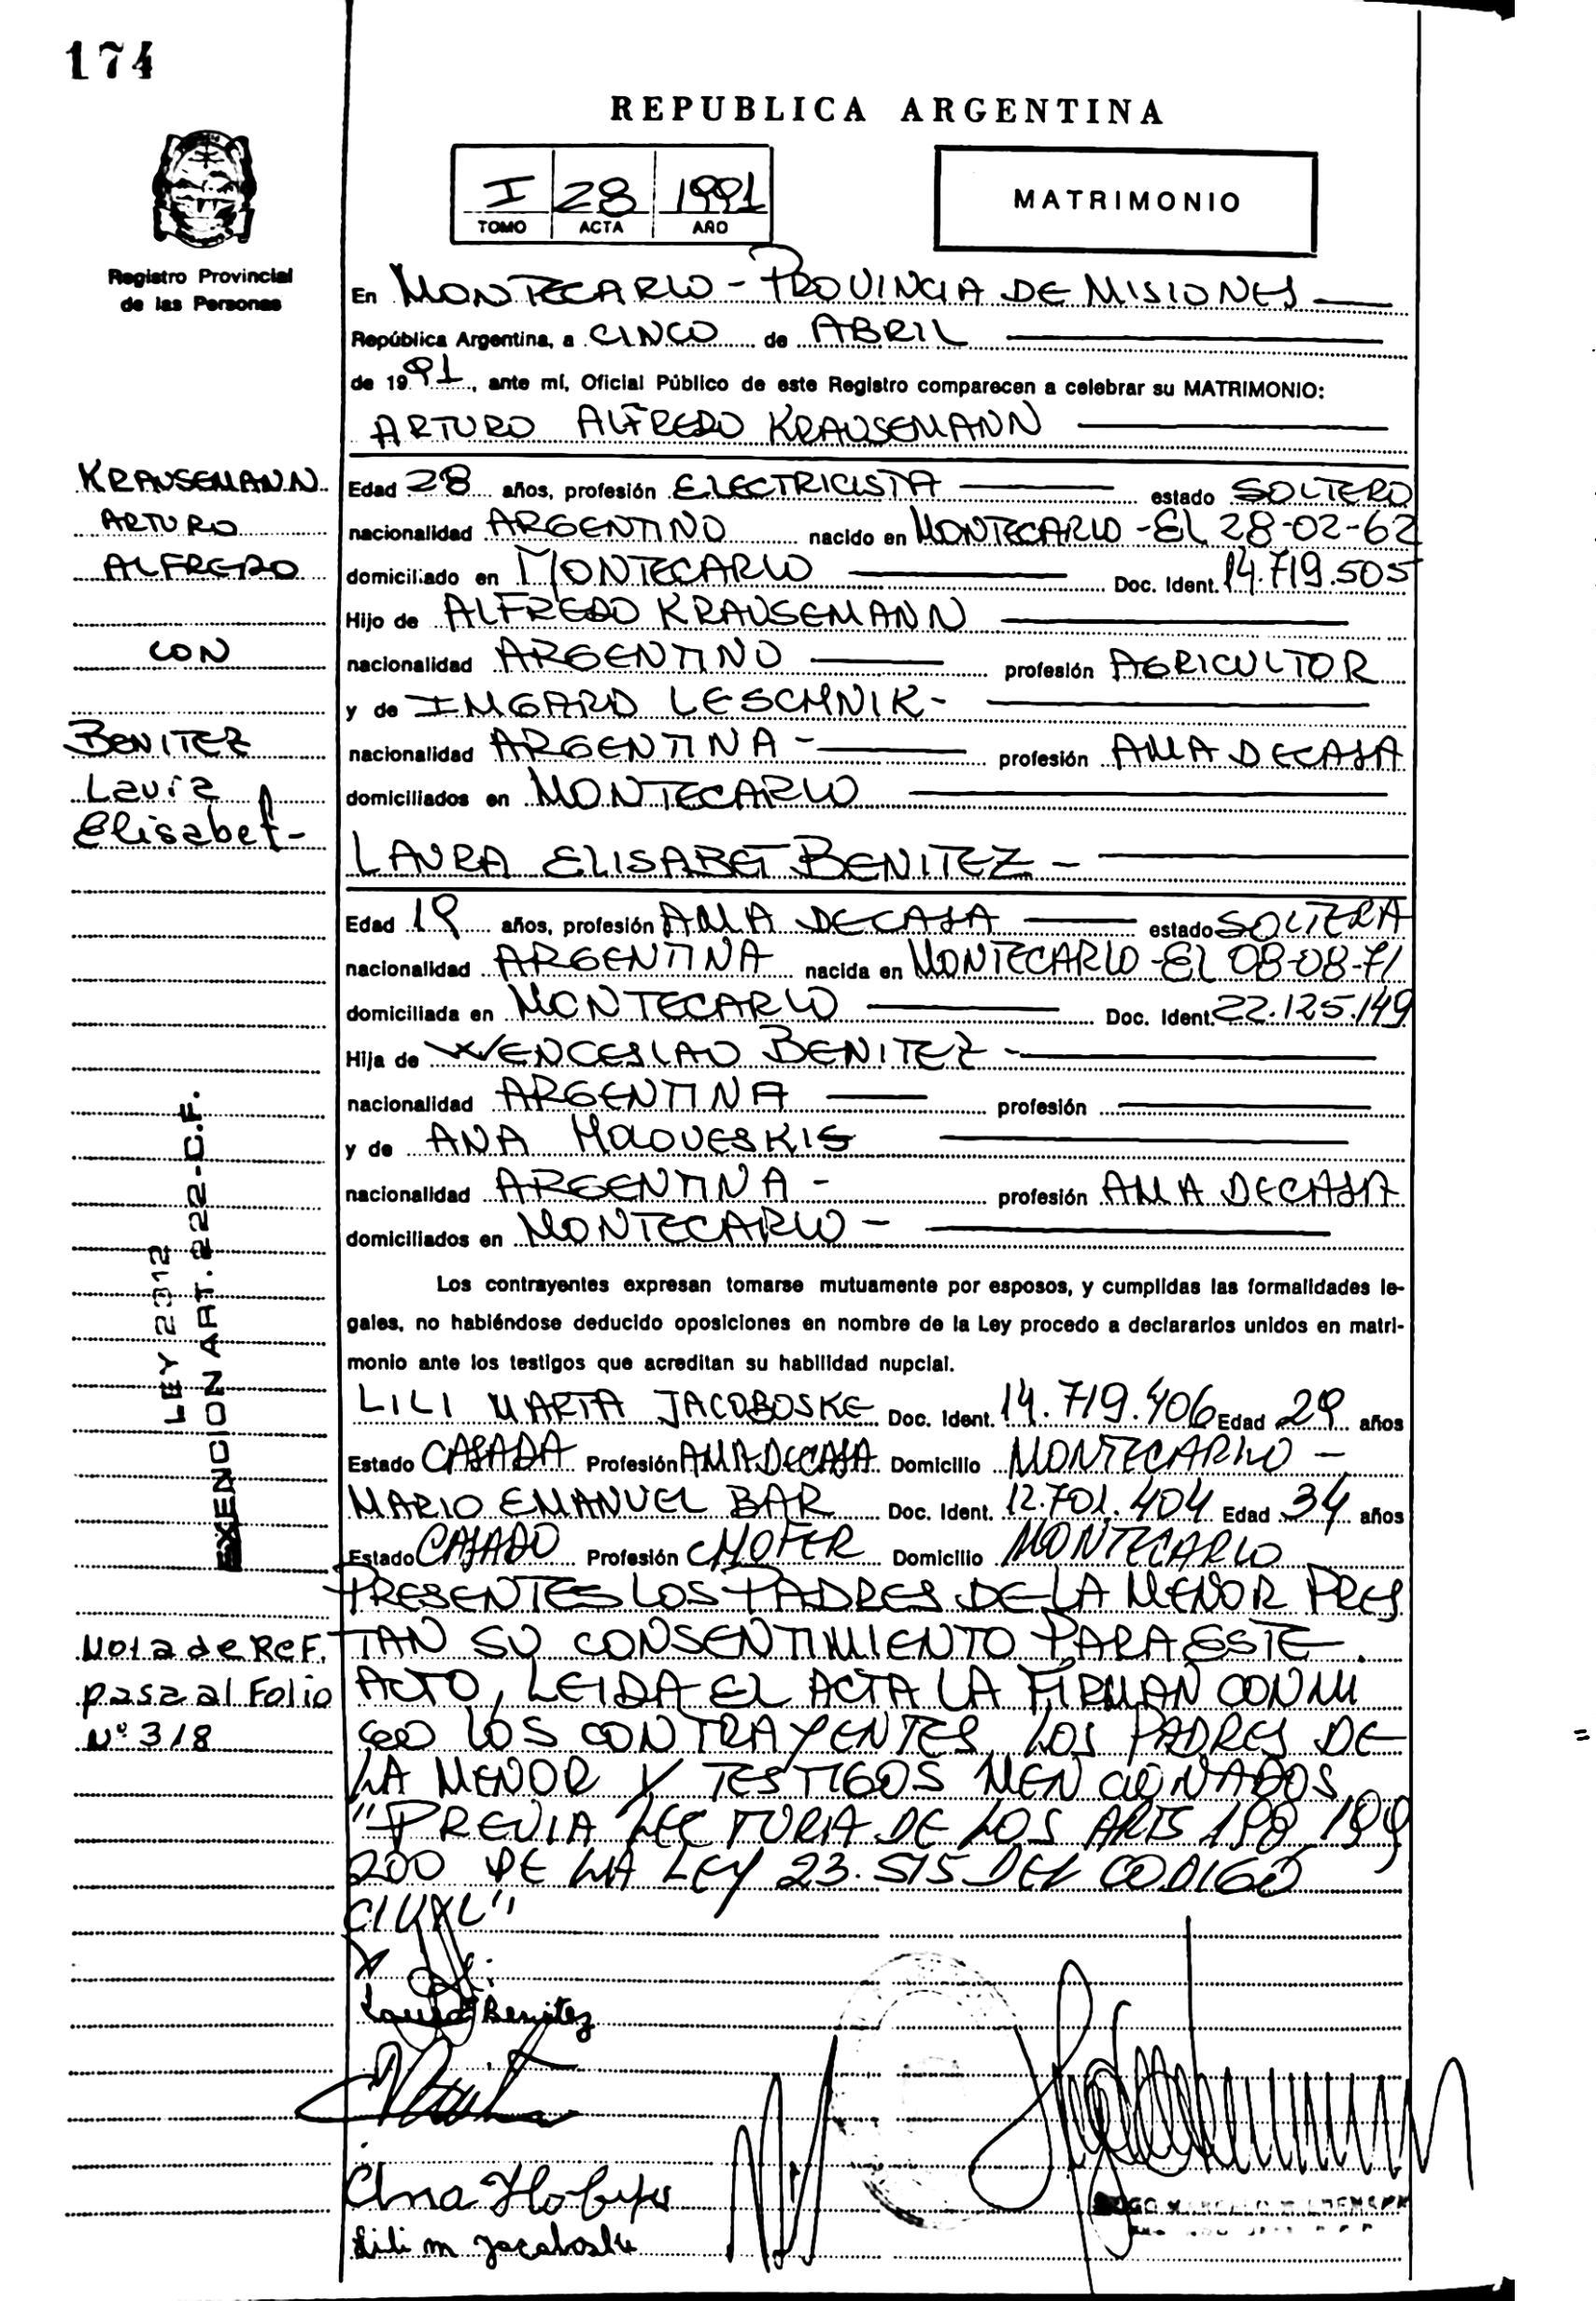 174
REPUBLICA ARGENTINA
I 28 1991
TOMO ACTA AÑO
MATRIMONIO
Registro Provincial
de las Personas
En MONTECARLO - PROVINCIA DE MISIONES
República Argentina, a CINCO de ABRIL
de 1991, ante mí, Oficial Público de este Registro comparecen a celebrar su MATRIMONIO:
ARTURO ALFREDO KRAUSEMANN
KRAUSEMANN
ARTURO
ALFREDO
CON
BENITEZ
Laura
Elisabet-
Edad 28 años, profesión ELECTRICISTA estado SOLTERO
nacionalidad ARGENTINO nacido en MONTECARLO - EL 28-02-62
domiciliado en MONTECARLO Doc. Ident. 14.719.505
Hijo de ALFREDO KRAUSEMANN
nacionalidad ARGENTINO profesión AGRICULTOR
y de INGARD LESCHNIK-
nacionalidad ARGENTINA - profesión AMA DE CASA
domiciliados en MONTECARLO
LAURA ELISABET BENITEZ -
Edad 19 años, profesión AMA DE CASA estado SOLTERA
nacionalidad ARGENTINA nacida en MONTECARLO - EL 08-08-71
domiciliada en MONTECARLO Doc. Ident. 22.125.149
Hija de WENCESLAO BENITEZ -
nacionalidad ARGENTINA profesión
y de ANA
nacionalidad ARGENTINA - profesión AMA DE CASA
domiciliados en MONTECARLO -
Los contrayentes expresan tomarse mutuamente por esposos, y cumplidas las formalidades le-
gales, no habiéndose deducido oposiciones en nombre de la Ley procedo a declararlos unidos en matri-
monio ante los testigos que acreditan su habilidad nupcial.
LILI MARTA JACOBOSKE Doc. Ident. 14.719.406 Edad 29 años
Estado CASADA Profesión AMA DE CASA Domicilio MONTECARLO -
MARIO EMANUEL BAR Doc. Ident. 12.701.404 Edad 34 años
Estado CASADO Profesión CHOFER Domicilio MONTECARLO
PRESENTES LOS PADRES DE LA MENOR PRES
TAN SU CONSENTIMIENTO PARA ESTE
ACTO, LEIDA EL ACTA LA FIRMAN CONMI
GO LOS CONTRAYENTES, LOS PADRES DE
LA MENOR Y TESTIGOS MENCIONADOS
"PREVIA LECTURA DE LOS ARTS 198, 199
200 DE LA LEY 23.515 DEL CODIGO
CIVIL"
LEY 2312
EXENCION ART. 222-C.F.
Nota de Ref.
pasa al Folio
Nº 318
Laura Benitez
Ana
Lili M Jacoboske